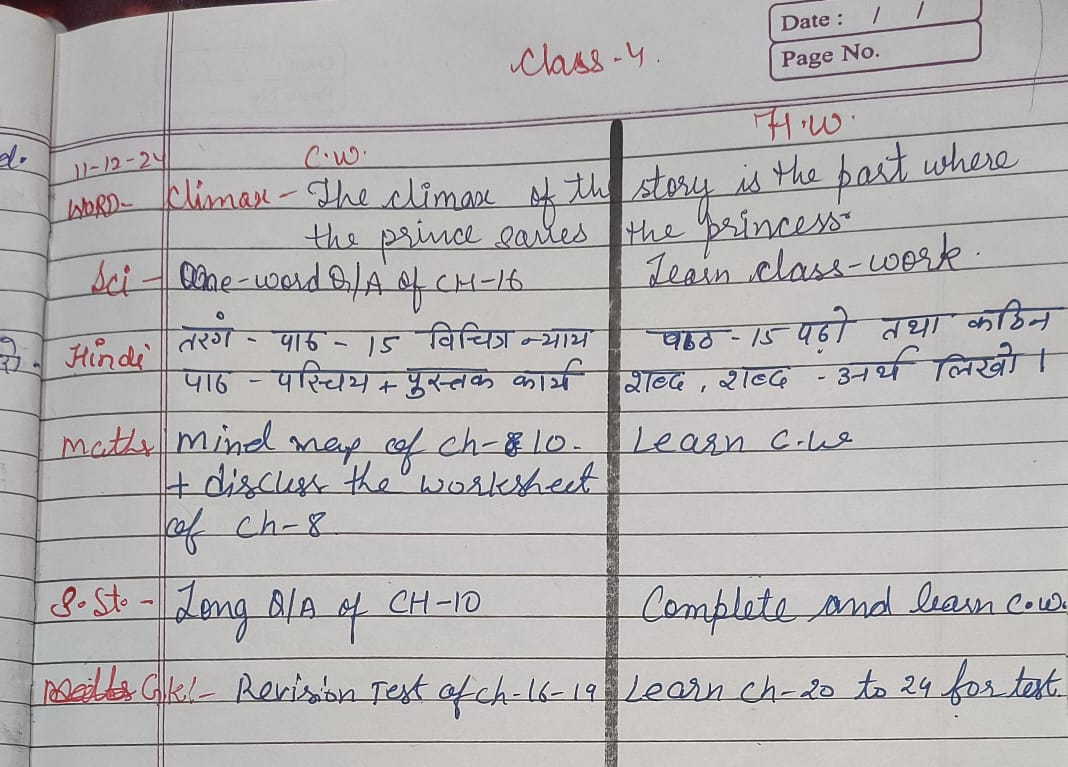 Date : / /
Page No.
Class-4.
11-12-24 C.W. H.W.
WORD- Climax - The climax of the story is the part where
the prince saves the princess.
Sci - One-word Q/A of CH-16 Learn class-work.
Hindi तरंग - पाठ - 15 विचित्र न्याय पाठ - 15 पढ़ो तथा कठिन
पाठ - परिचय + पुस्तक कार्य शब्द, शब्द - अर्थ लिखो ।
Maths Mind map of Ch-10. Learn C.W
+ discuss the worksheet
of Ch-8
S.St. - Long Q/A of CH-10 Complete and learn C.W.
G.K!- Revision Test of ch-16-19 Learn ch-20 to 24 for test